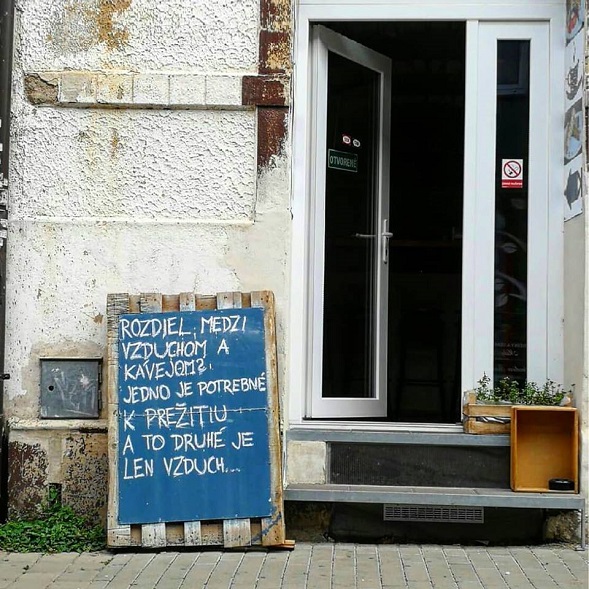 OTVORENÉ
ROZDIEL MEDZI
VZDUCHOM A
KÁVEJOM?
JEDNO JE POTREBNÉ
K PREŽITIU
A TO DRUHÉ JE
LEN VZDUCH...